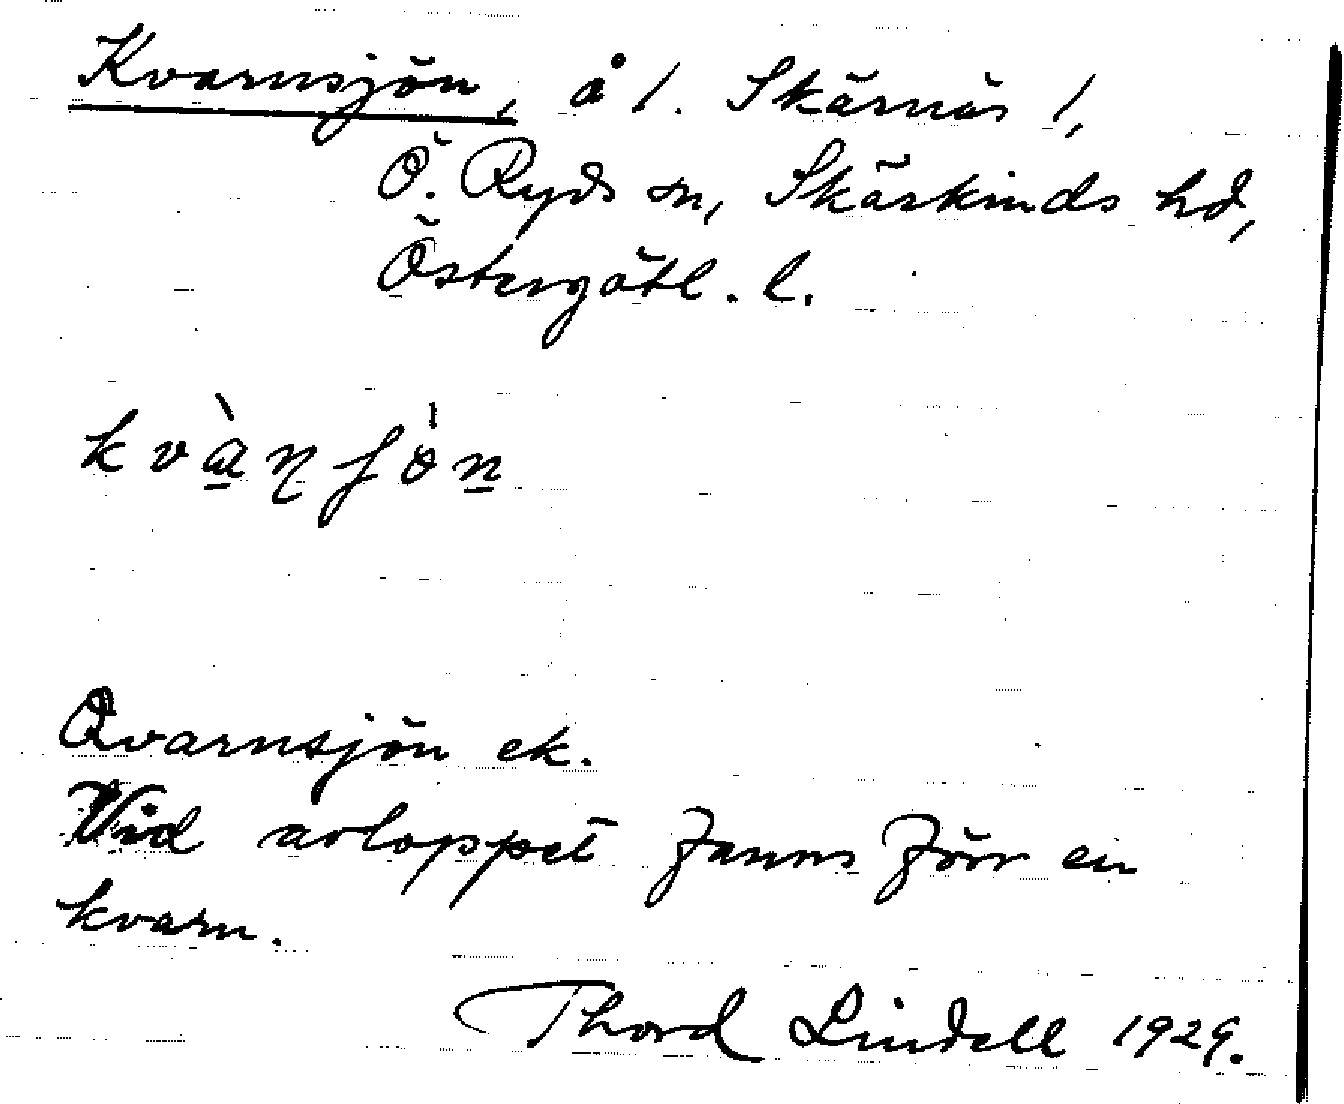 Kvarnsjön, å 1. Skärnäs 1,
Ö. Ryds sn, Skärkinds hd,
Östergötl. l.
kvàɳʃón
Qvarnsjön ek.
Vid avloppet fanns förr en
kvarn.
Thord Lindell 1929.